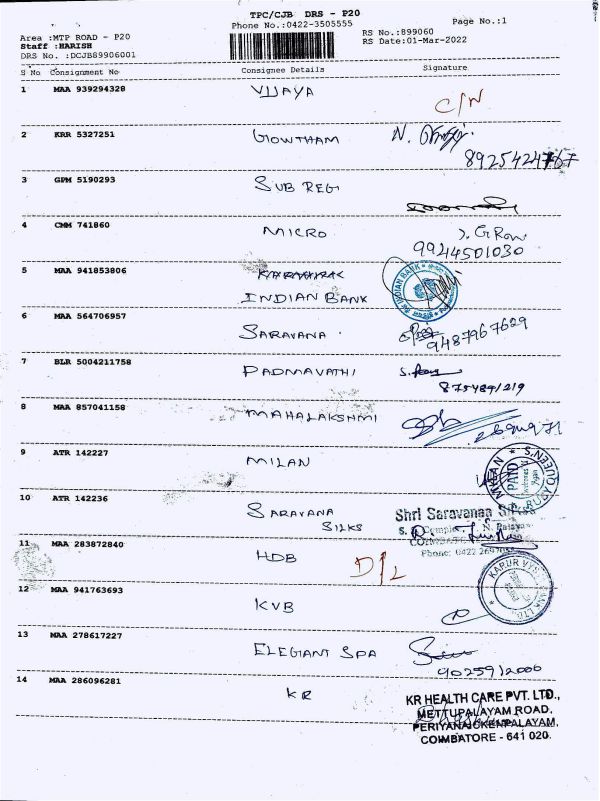 TPC/CJB DRS - P20
Phone No.:0422-3505555
Page No.:1
Area :MTP ROAD - P20
RS No.:899060
Staff :HARISH
RS Date:01-Mar-2022
DRS No. :DCJB89906001
S No Consignment No Consignee Details Signature
1 MAA 939294328 VIJAYA C/N
2 KRR 5327251 GOWTHAM N.
8925424767
3 GPM 5190293 SUB REG
4 CMM 741860 MICRO
9944501030
5 MAA 941853806
INDIAN BANK
INDIAN BANK
6 MAA 564706957 SARAVANA 9487967629
7 BLR 5004211758 PADMAVATHI S.
8 MAA 857041158 MAHALAKSHMI
9 ATR 142227 MILAN
QUEEN'S
PAID
10 ATR 142236 SARAVANA SILKS
Shri Saravanaa
Phone: 0422
11 MAA 283872840 HDB D/L
12 MAA 941763693 KVB
KARUR VYSYA BANK LTD
13 MAA 278617227 ELEGANT SPA
9025912000
14 MAA 286096281 KR
KR HEALTH CARE PVT. LTD.,
METTUPALAYAM ROAD,
PERIYANAICKENPALAYAM,
COIMBATORE - 641 020.